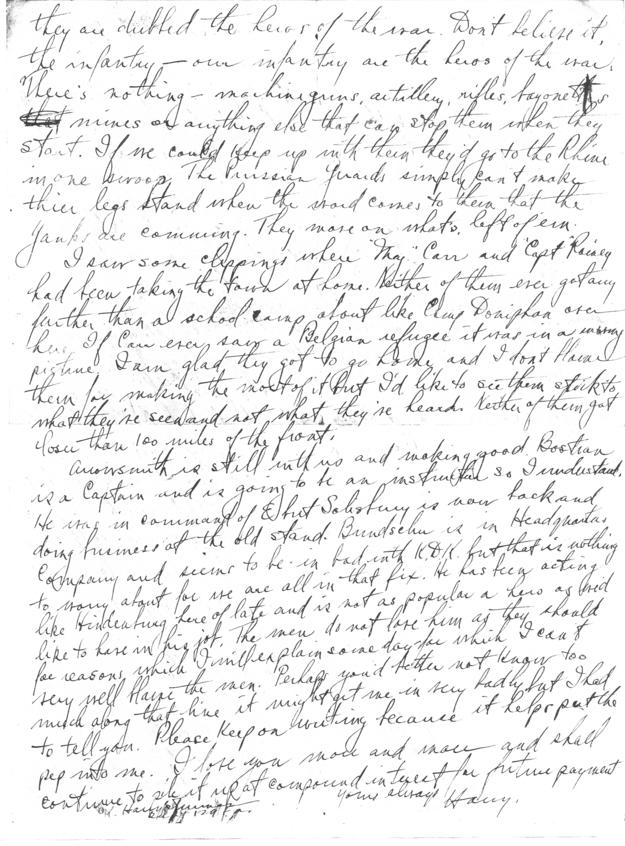 they are dubbed the heros of the war. Don't believe it,
the infantry - our infantry are the heros of the war.
There's nothing - machine guns, artillery, rifles, bayonets
mines or anything else that can stop them when they
start. If we could keep up with them they'd go to the Rhine
in one swoop. The Prussian Guards simply can't make
thier legs stand when the word comes to them that the
Yanks are comming. They move on what's left of 'em.
I saw some clippings where "Maj" Carr and "Capt" Rainey
had been taking the town at home. Neither of them ever got any
further than a school camp about like Camp Doniphan over
here. If Carr ever saw a Belgian refugee it was in a moving
picture. I am glad they got to go home and I don't blame
them for making the most of it but I'd like to see them stick to
what they've seen and not what they've heard. Neither of them got
closer than 100 miles of the front.
Arrowsmith is still with us and making good. Bostian
is a Captain and is going to be an instructor so I understand.
He was in command of E but Salisbury is now back and
doing business at the old stand. Bundschu is in Headquarters
Company and seems to be in bad with K.D.K. but that is nothing
to worry about for we are all in that fix. He has been acting
like Hindenburg here of late and is not as popular a hero as we'd
like to have in his job. The men do not love him as they should
for reasons which I will explain some day for which I can't
very well blame the men. Perhaps you'd better not know too
much along that line it might get me in very badly but I had
to tell you. Please keep on writing because it helps put the
pep into me. I love you more and more and shall
continue to pile it up at compound interest for future payment
Yours always Harry.
Harry S Truman
129 F.A.